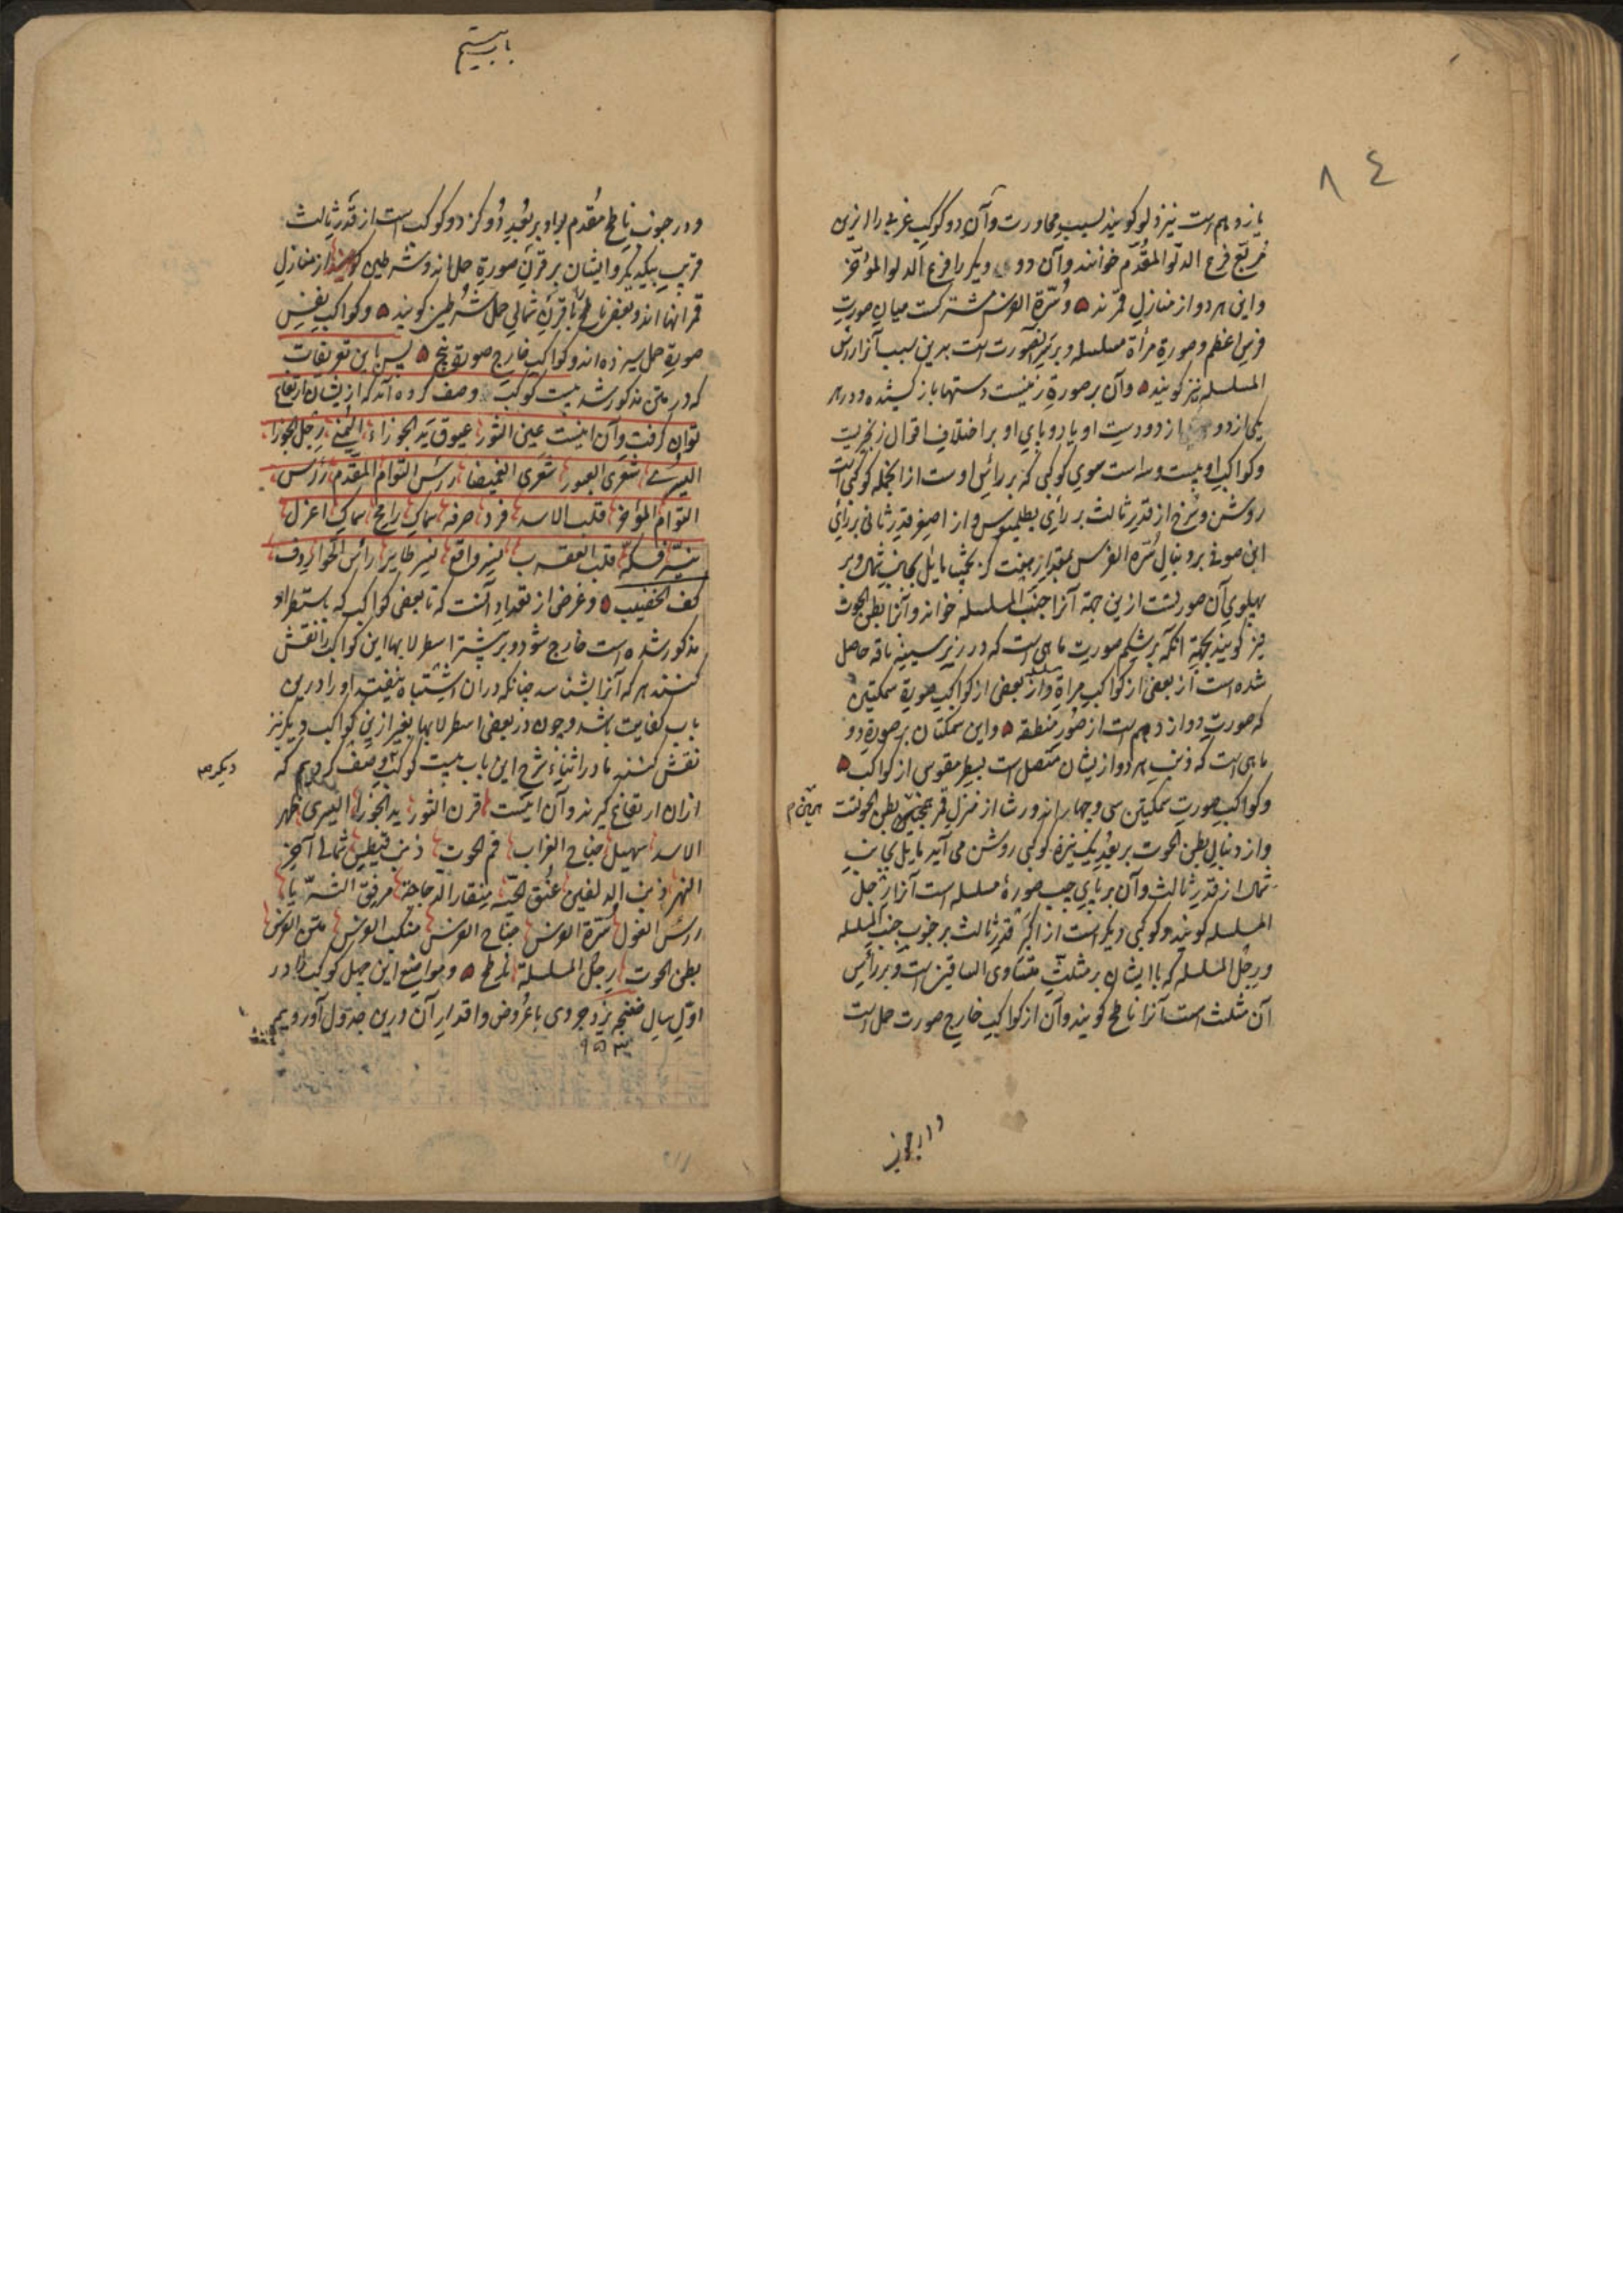 ٨٤
یازدهم است نیز دلو گویند بسبب مجاورت و آن دو کوکب غربی را ازین
مربع فرع الدلو المقدم خوانند و آن دو دیگر را فرع الدلو المؤخر
و این هر دو از منازل قمرند و سرة الفرس مشترکست میان صورت
فرس اعظم و صورة مرأة مسلسله و بر سر آنصورت است بدین سبب آنرا راس
المسلسله نیز گویند و آن بر صورة زنیست دستها باز کشیده و در هر
یکی از دو از دو دست او یا دو پای او بر اختلاف اقوال زنجیریست
و کواکب او بیست و سه است سوی کوکبی که بر رأس اوست از انجمله کوکبی است
روشن و سرخ از قدر ثالث بر رأی بطلمیوس و از اصغر قدر ثانی بر رأی
ابن صوفی بر دنبال سره الفرس بمقدار هفت گز بچپ مایل بجانب شمال و بر
پهلوی آن صورتست ازین جهة آنرا جنب المسلسله خوانند و آنرا بطن الحوت
نیز گویند بجهة آنکه بر شکم صورت ماهی است که در زیر سینه ناقه حاصل
شده است از بعضی از کواکب مرأة مسلسله و از بعضی از کواکب صورة سمکتین
که صورت دوازدهم است از صور منطقه و این سمکتان بر صورة دو
ماهی است که ذنب هر دو از یشان متصل است بسطر مقوس از کواکب
و کواکب صورت سمکتین سی و چهار اند و رشا از منزل قمر بطن الحوتست
و از دنبال بطن الحوت بر بعد یک نیزه کوکبی روشن می آید مایل بجانب
شمال از قدر ثالث و آن بر پای چپ صورة مسلسله است آنرا رجل
المسلسله گویند و کوکبی دیگر است از اکبر قدر ثالث بر جنوب جنب المسلسله
و رجل المسلسله که با ایشان بر مثلث متساوی الساقین است و بر رأس
آن مثلث است آنرا ناطح گویند و آن از کواکب خارج صورت حمل است
و در جنوب
باب بیستم
و در جنوب ناطح مقدم براو بر بعد دو گز دو کوکب است از قدر ثالث
قریب بیکدیگر و ایشان بر قرن صورة حمل اند و شرطین گویند از منازل
قمر انها اند و بعضی ناطح با قرن شمالی حمل شرطین گویند و کواکب نفس
صورة حمل سیزده اند و کواکب خارج صورة پنج پس باین تعریفات
که در متن مذکور شد بیست کوکب وصف کرده آمد که از یشان ارتفاع
توان گرفت و آن اینست عین الثور عیوق ید الجوزاء الیمنی رجل الجوزا
الیسری شعری العبور شعری الغمیصا رأس التوام المقدم رأس
التوام المؤخر قلب الاسد فرد صرفه سماک رامح سماک اعزل
نیر فکه قلب العقرب نسر واقع نسر طایر رأس الحوا ردف
کف الخضیب و غرض از تعداد آنست که تا بعضی کواکب که باستطراد
مذکور شده است خارج شود و بر بیشتر اسطرلابها این کواکب را نقش
کنند هر که آنرا بشناسد چنانکه در ان اشتباه نیفتد او را درین
باب کفایت باشد و چون در بعضی اسطرلابها بغیر ازین کواکب دیگر نیز
نقش کنند ما در اثناء شرح این باب بیست کوکب وصف کردیم که
دیگر
ازان ارتفاع گیرند و آن اینست قرن الثور ید الجوزا الیسری ظهر
الاسد سهیل جناح الغراب فم الحوت ذنب قیطس شمالی آخر
النهر ذنب الدلفین عنق الحیة منقار الدجاجة مرفق الثریا
رأس الغول سرة الفرس جناح الفرس منکب الفرس متن الفرس
بطن الحوت رجل المسلسلة ناطح و مواضع این چهل کوکب را در
اول سال ضفنج یزدجردی با عروض و اقدار آن درین جدول آوردیم
۹۵۳